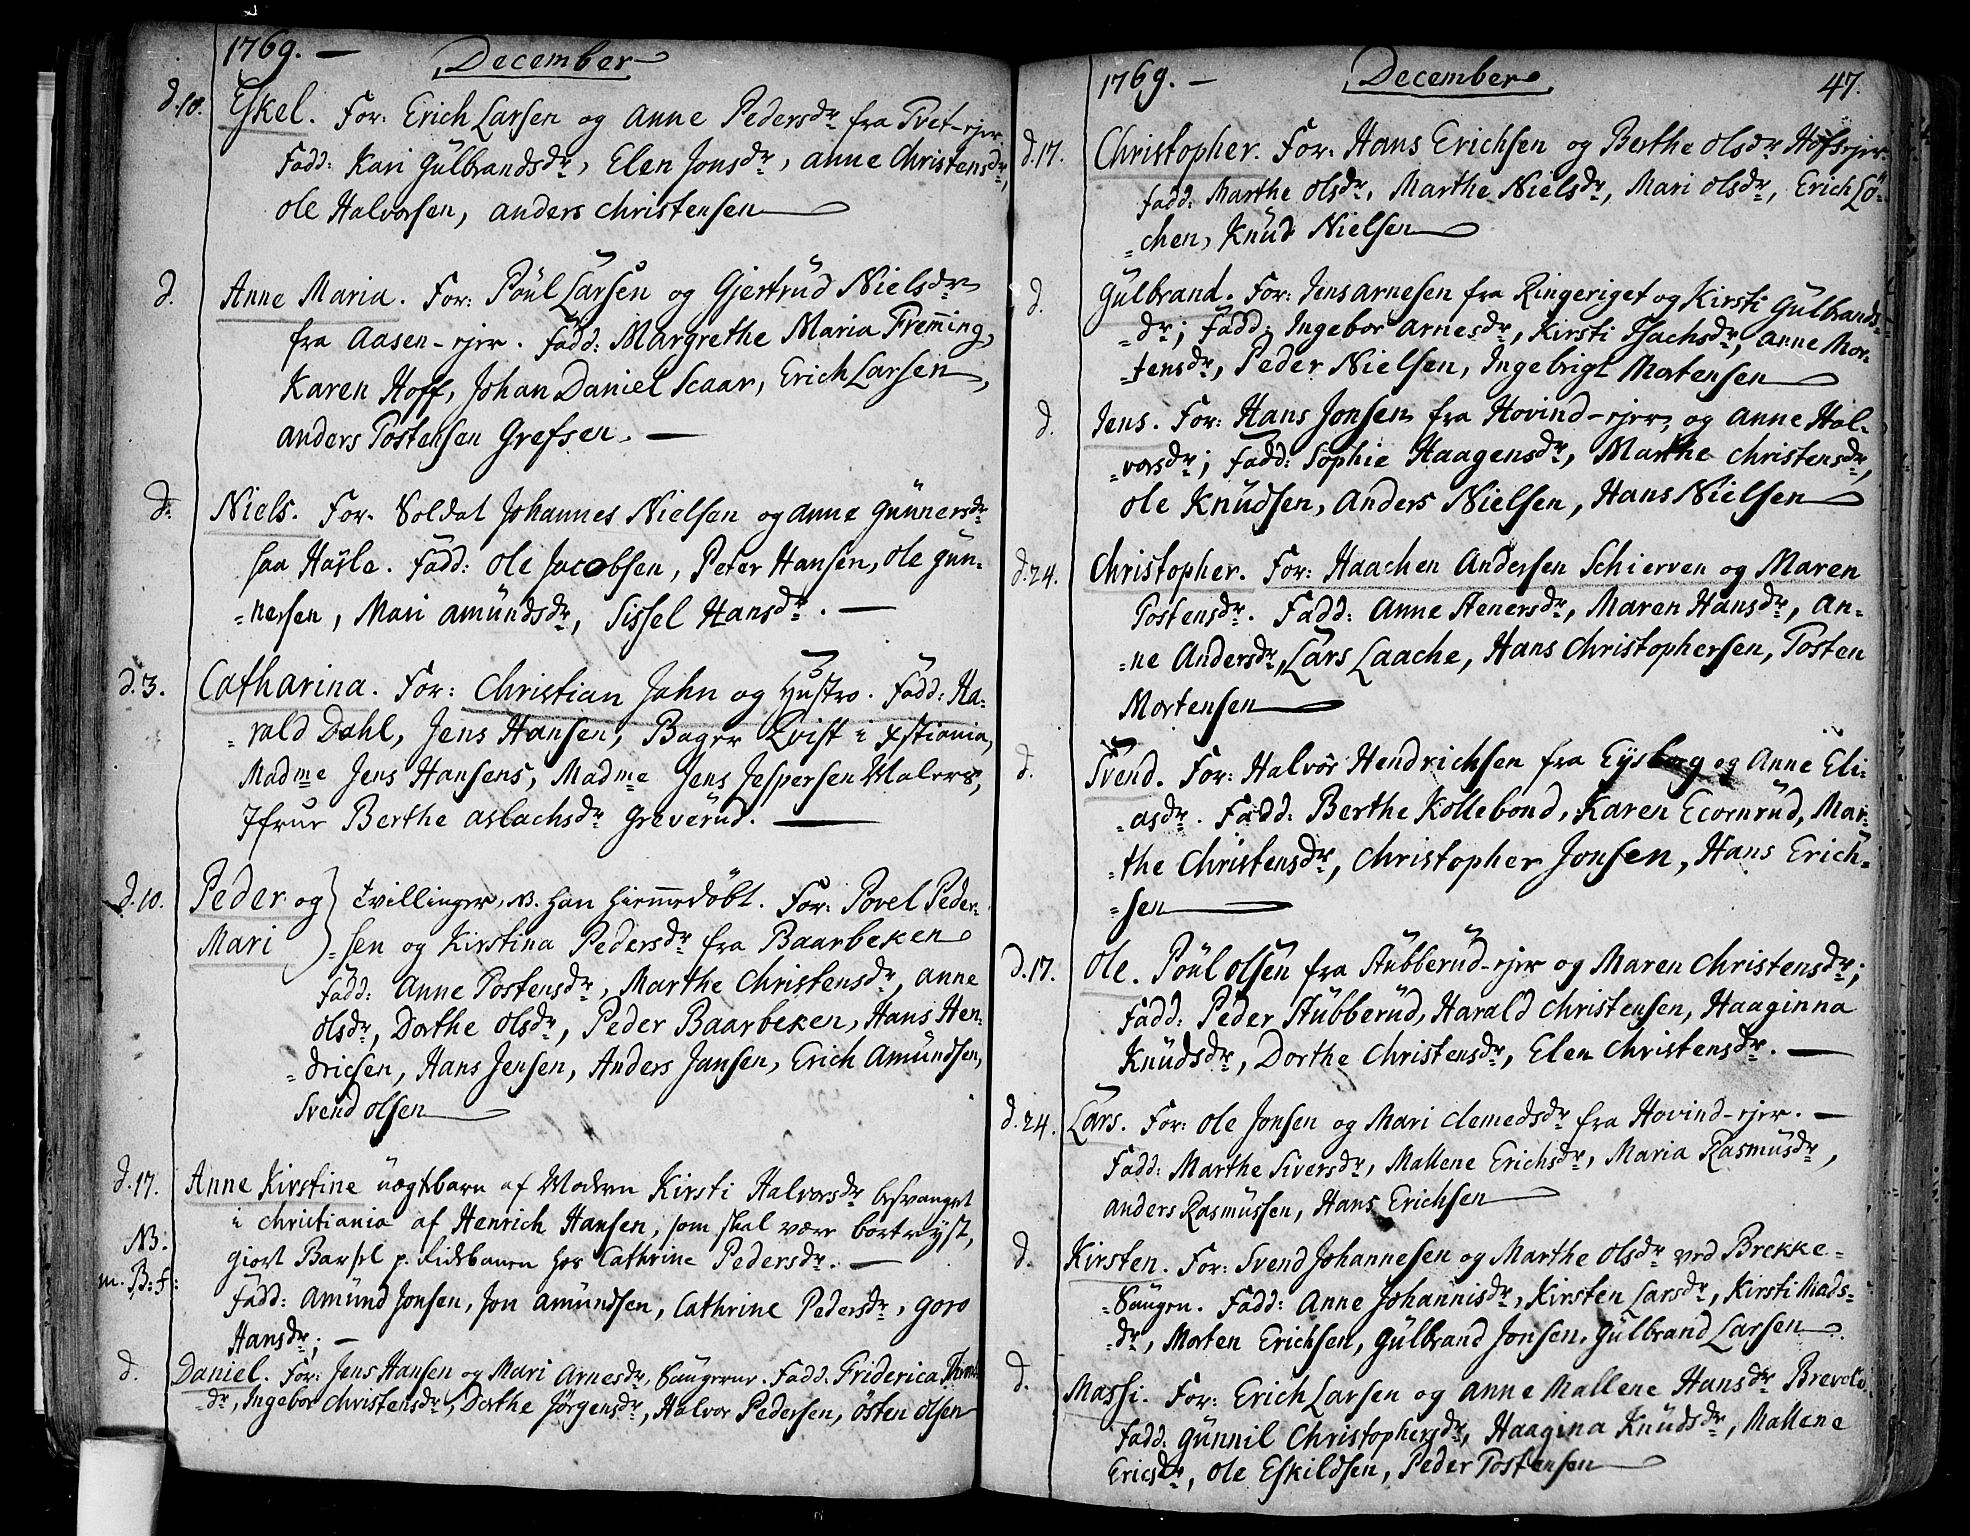 1769. — December
d. 10. Eskel. For: Erich Larsen og Anne Pedersdr fra Tvet-ejer
Fadd: Kari Gülbrandsdr, Elen Jonsdr, anne Christensdr,
Ole Halvorsen, anders Christensen
d. Anne Maria. For: Poül Larsen og Gjertrüd Nielsdr
fra Aasen-ejer. Fadd: Margrethe Maria Fremming,
Karen Hoff, Johan Daniel Scaar, Erich Larsen,
anders Tostensen Grefsen. —
d. Niels. For. Soldat Johannes Nielsen og anne Günnersdr
paa Hasle. Fadd: Ole Jacobsen, Peter Hansen, Ole gün-
=nersen, Mari amündsdr, Sissel Hansdr. —
d. 3. Catharina. For: Christian Jahn og Hustro. Fadd: Ha-
=rald Dahl, Jens Hansen, Bager Qvist i Xstiania,
Madme Jens Hansens, Madme Jens Jespersen Malers,
Jfrue Berthe aslachsdr Greverüd. —
d. 10. Peder og } Tvillinger, NB. han hiemmedöbt. For: Povel Peder-
Mari } =sen og Kirstina Pedersdr fra Baarbeken
Fadd: Anne Tostensdr, Marthe Christensdr, anne
Olsdr, Dorthe Olsdr, Peder Baarbeken, Hans Hen-
=dricsen, Hans Jensen, Anders Jansen, Erich Amündsen,
Svend Olsen
d. 17. Anne Kirstine üægtebarn af Modern Kirsti Halvorsdr besvanget
i Christiania af Henrich Hansen, som skal være bortreyst,
NB. giort Barsel p. hos Cathrine Pedersdr. —
m. B: f: Fadd: Amünd Jonsen, Jon amündsen, Cathrine Pedersdr, goro
Hansdr; —
d. Daniel. For: Jens Hansen og Mari Arnesdr, Saugerne. Fadd. Friderica
=dr, Ingebor Christensdr, Dorthe Jörgensdr, Halvor Pedersen, östen Olsen
1769. — December 47.
d. 17. Christopher. For: Hans Erichsen og Berthe Olsdr Hofsejer.
Fadd: Marthe Olsdr, Marthe Nielsdr, Mari Olsdr, Erich Lö-
=chen, Knüd Nielsen
d. Gülbrand. For: Jens arnesen fra Ringeriget og Kirsti Gülbrands-
=dr; Fadd: Ingebor Arnesdr, Kirsti Isachsdr, anne Mor-
=tensdr, Peder Nielsen, Ingebrigt Mortensen
d. Jens. For: Hans Jonsen fra Hovind-ejer, og Anne Hal-
=vorsdr; Fadd: Sophie Haagensdr, Marthe Christensdr,
Ole Knüdsen, Anders Nielsen, Hans Nielsen
d. 24. Christopher. For: Haachen Andersen Schierven og Maren
Tostensdr. Fadd: Anne Stenersdr, Maren Hansdr, An-
=ne Andersdr, Lars Laache, Hans Christophersen, Tosten
Mortensen
d. Svend. For: Halvor Hendrichsen fra Eysberg og Anne Eli-
=asdr. Fadd: Berthe Kollebond, Karen Ecornrüd, Mar-
=the Christensdr, Christopher Jonsen, Hans Erich-
=sen
d. 17. Ole. Poül Olsen fra Stübberüd-ejer og Maren Christensdr;
Fadd: Peder Stübberüd, Harald Christensen, Haaginna
Knüdsdr, Dorthe Christensdr, Elen Christensdr. —
d. 24. Lars. For: Ole Jonsen og Mari Clemedsdr fra Hovind-ejer. —
Fadd: Marthe Siversdr, Mallene Erichsdr, Maria Rasmüsdr,
anders Rasmüssen, Hans Erichsen
d. Kirsten. For: Svend Johannesen og Marthe Olsdr ved Brekke-
=Saugen. Fadd: Anne Johannisdr, Kirsten Larsdr, Kirsti Mads-
=dr, Morten Erichsen, Gülbrand Jonsen, Gülbrand Larsen
d. Massi. For: Erich Larsen og Anne Mallene Hansdr
Fadd: Günnil Christophersdr, Haagina Knüdsdr, Mallene
Ericsdr, Ole Eskildsen, Peder Tostensen